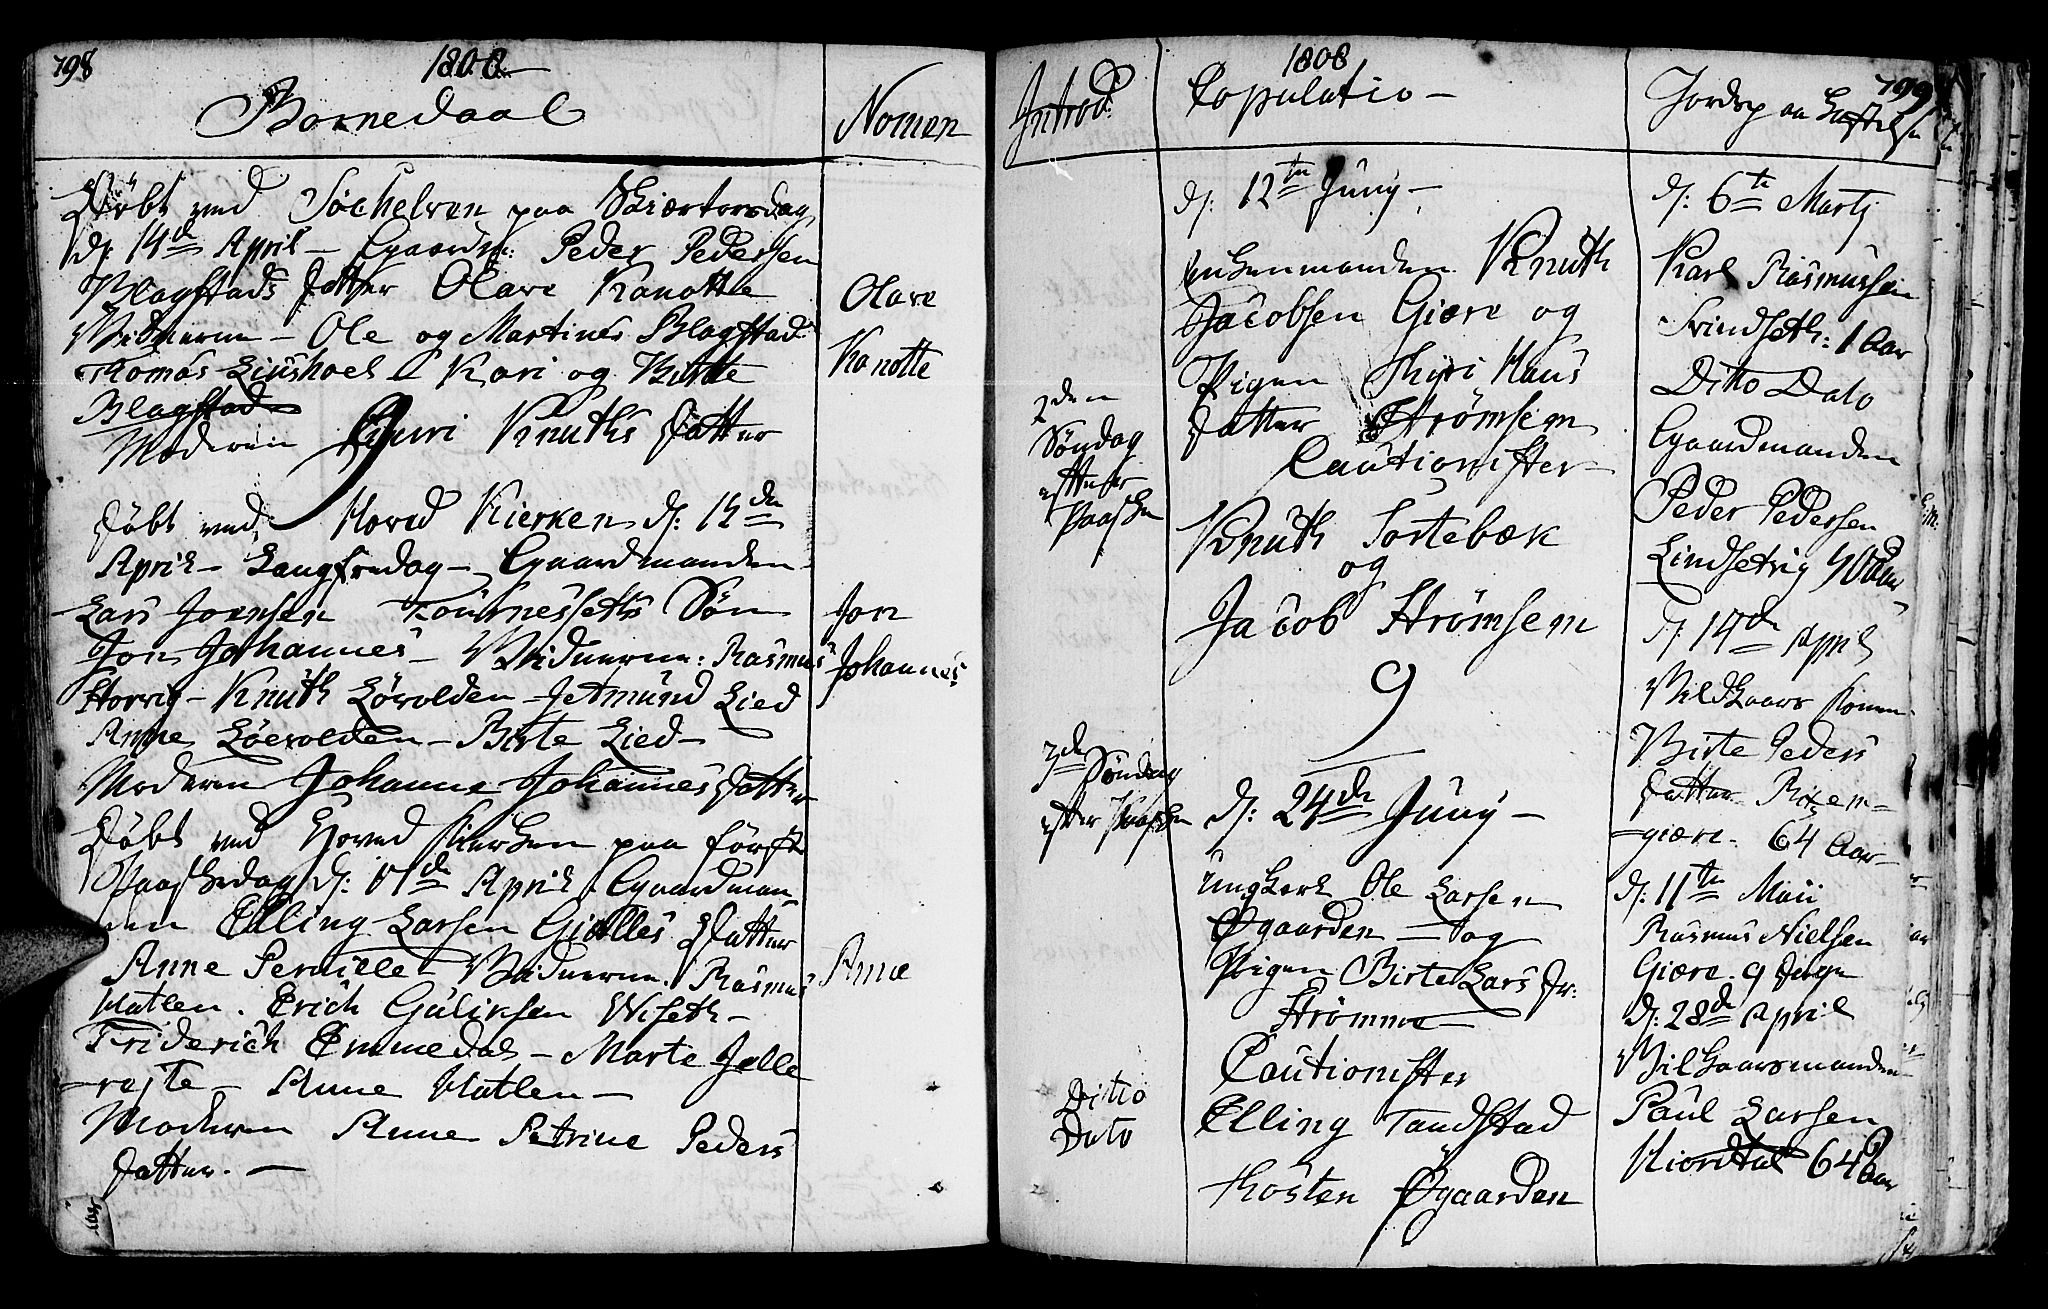 798
1808
Bornedaab
Nomen
Døbt ved Søchelven paa Skiertorsdag
d: 14de April – Gaardm: Peder Pedersen
Blagstads Datter Olave Kanotte
Vidnerne – Ole og Martinus Blagstad
Thomas Liushoel – Kari og Birte
Blagstad
Moderen Guri Knuths Datter
Olave
Kanotte
Døbt ved Hoved Kierken d: 15de
April – Langfredag – Gaardmanden
Lars Joensen Tournesseths Søn
Jon Johannes – Vidnerne: Rasmus
Storvig – Knuth Løvolden – Amund Lied
Anne Løevolden – Birte Lied –
Moderen Johanne Johannes Datter
Jon
Johannes
Døbt ved Hoved Kierken paa første
Paaskedag d: 17de April Gaardman
nen Elling Larsen Giølles Datter
Anne Pernille – Vidnerne. Rasmus
Hatlen. Erich Guliksen Wiseth –
Friderich Emmedal – Marte Jelle
røste – Anne Hatlen –
Moderen Anne Petrine Peders
Datter. –
Anne
Introd:
1808
Copulatio –
799
Jordsp aa
2den
Søndag
efter
Paasken
7de Søndag
efter Paasken
Ditto
Dato
d: 12te Juny –
Enkemanden Knuth
Jacobsen Giære og
Pigen Thyri Hans
Datter Strømsem
Cautionister
Knuth Sortebæk
og
Jacob Strømsem
9
d: 24de Juny –
Ungkarl Ole Larsen
Øgaarden – og
Pigen Birte Lars Dr:
Strømme
Cautionister
Elling Tandstad
Thosten Øgaarden
d: 6te Martj
Karl Rasmussen
Svindseth: 1 Aar
Ditto Dato
Gaardmanden
Peder Pedersen
Lindsetvig 40 Aar
d: 14de April
Vilkaars Konen
Birte Peders
Datter
giære – 64 Aar
d: 11te Maii
Rasmus Nielsen
Giære. 9 Dage
d: 28de April
Vilkaarsmanden
Paul Larsen
64 Aar